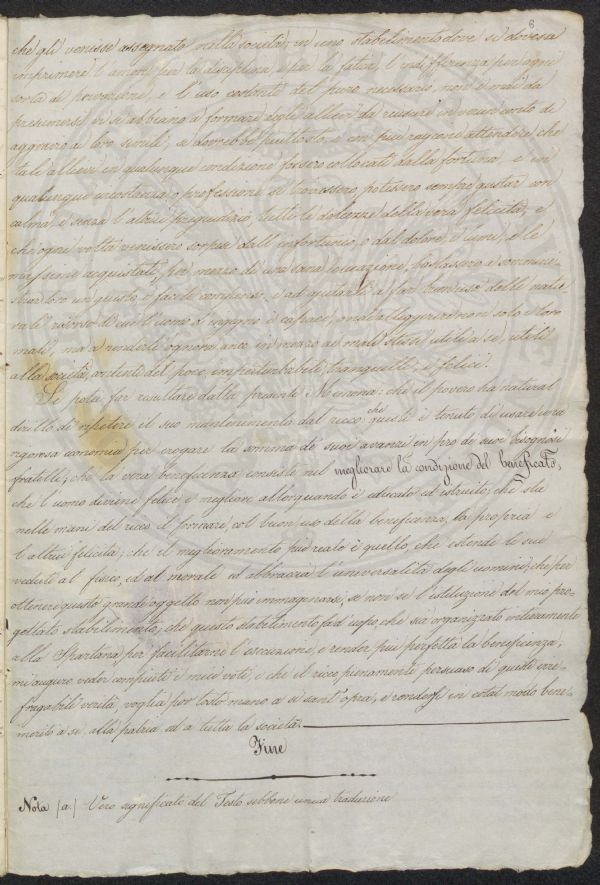 8
che gli venisse assegnato nella società, in uno stabilimento dove si dovesse
imprimere l'amore per la disciplina, e per la fatica, l'indifferenza per ogni
sorta di privazione, e l'uso costante del puro necessario, non è mai da
presumersi vi si abbiano a formare degli allievi da riescire in verun conto di
aggravio a' loro simili; si dovrebbe piuttosto, e con più ragione attendere che
tali allievi in qualunque condizione fossero collocati dalla fortuna, e in
qualunque circostanza, o professione si trovassero, potessero sempre gustar con
calma, e senza l'altrui pregiudizio, tutte le dolcezze della vera felicità, e
che ogni volta venissero sorpresi dall'infortunio, o dal dolore, i lumi, e le
massime acquistate, per mezzo di una sana educazione, bastassero a sommini-
strar loro un giusto, e facile compenso, e ad ajutarli a far uso delle natu-
rali risorse di cui l'uomo d'ingegno è capace, onde alleggerire non solo i loro
mali, ma a renderli ognora anco in mezzo ai mali stessi utili a se, utili
alla società, ardenti del poco imperturbabili, tranquilli, e felici.
Se potei far risultare dalla presente Memoria: che il povero ha natural
diritto di ripetere il suo mantenimento dal ricco; che questi è tenuto di usare una
rigorosa economia per erogare la somma de' suoi avanzi in pro de' suoi bisognosi
fratelli; che la vera beneficenza consiste nel megliorare la condizione del beneficato;
che l'uomo diviene felice e migliore allorquando è educato ed istruito; che sta
nelle mani del ricco il formare, col buon uso della beneficenza, la propria e
l'altrui felicità; che il miglioramento più reale è quello, che estende le sue
vedute al fisico, ed al morale ed abbraccia l'universalità degli uomini; che per
ottenere questo grande oggetto non può immaginarsi, se non se l'istituzione del mio pro-
gettato stabilimento; che questo stabilimento fa d'uopo, che sia organizzato intieramente
alla Spartana per facilitarne l'esecuzione, e render più perfetta la beneficenza;
mi auguro veder compiuti i miei voti, e che il ricco pienamente persuaso di queste irre-
fragabili verità, voglia por tosto mano a sì sant'opra, e rendersi in cotal modo bene-
merito a se, alla patria, ed a tutta la società.
Fine
Nota (a) Vero significato del Testo sebbene unica traduzione